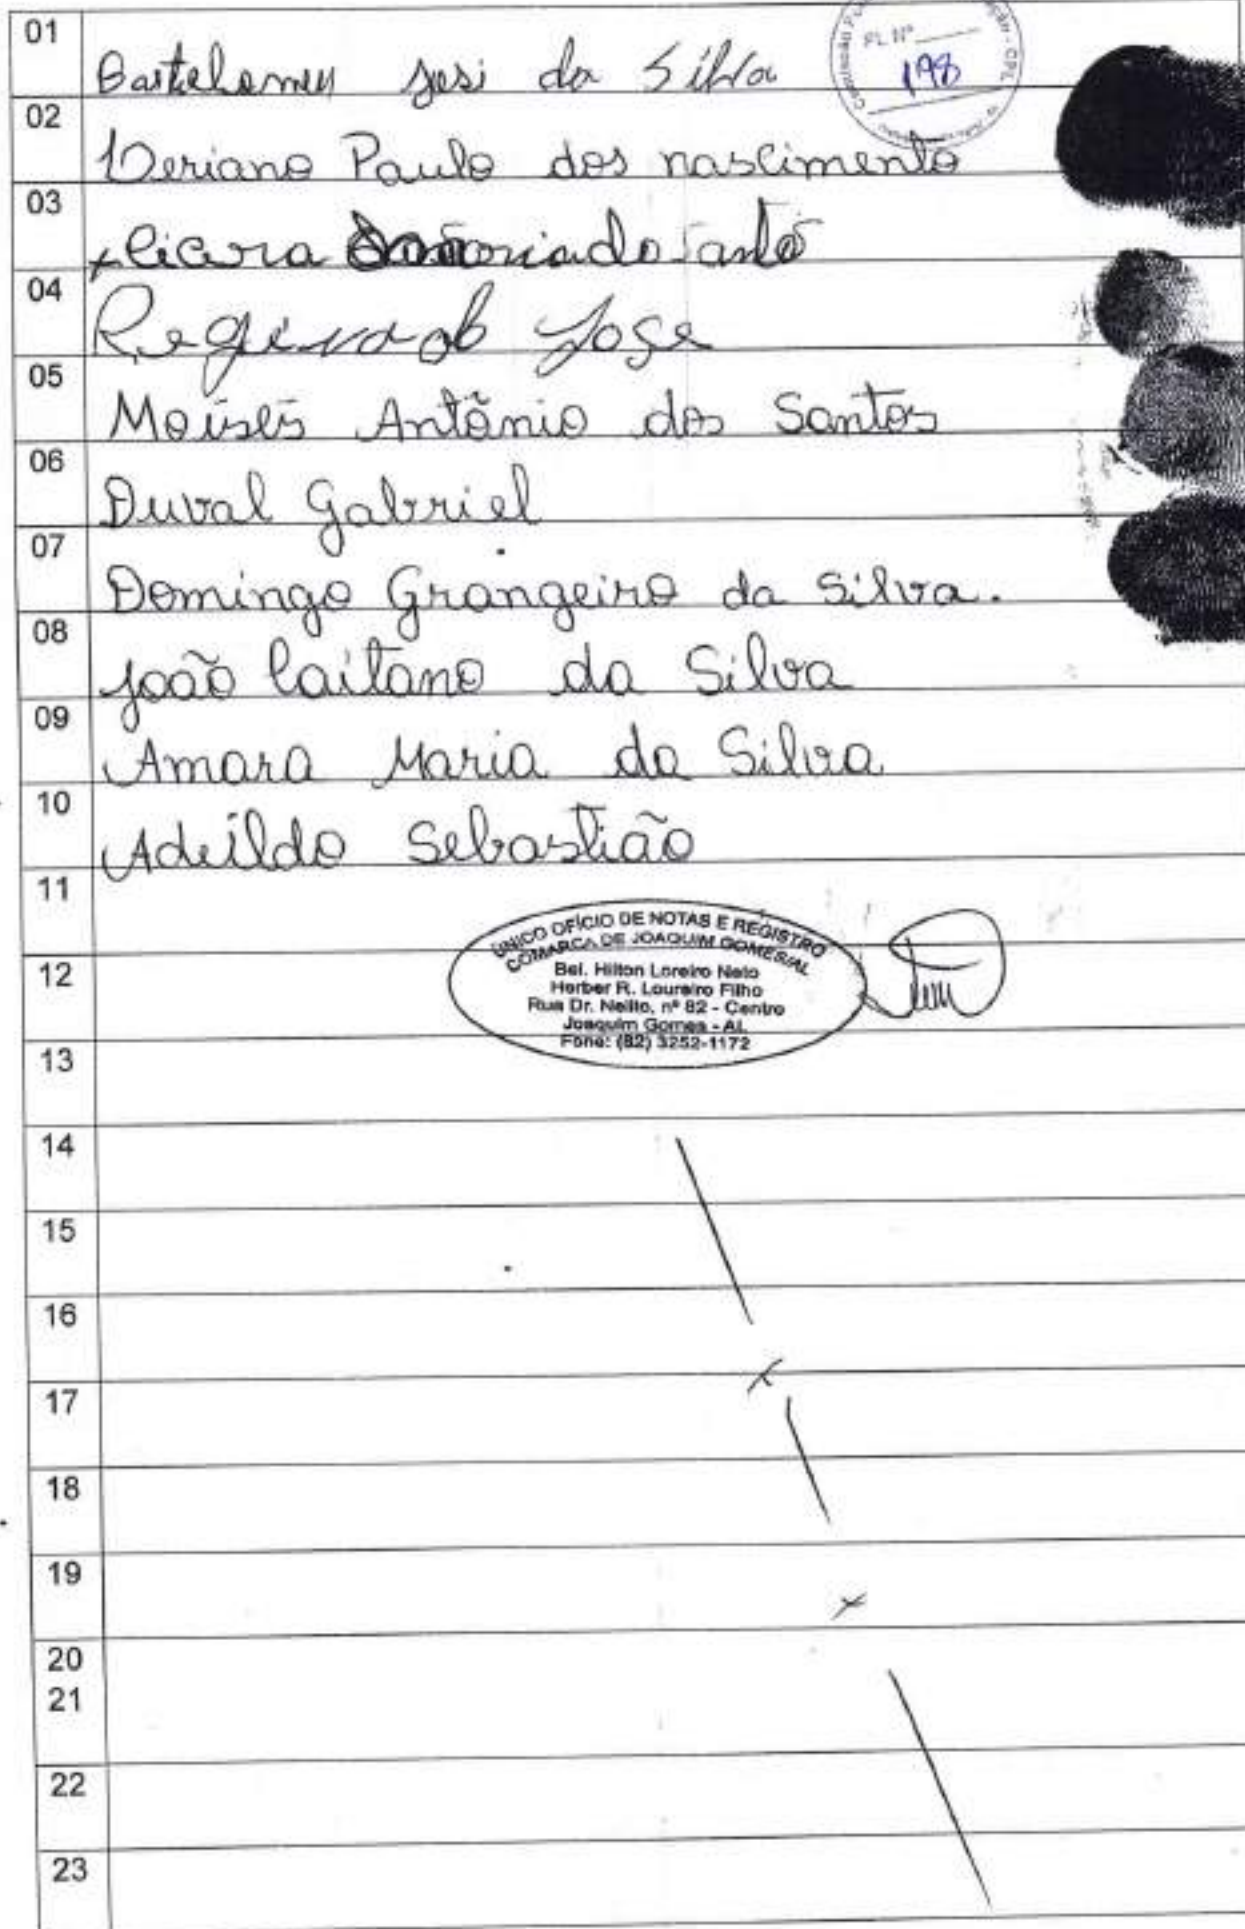 01
Bartolomeu josi da Silva
02
Veriano Paulo dos nascimento
03
04
José
05
Moisés Antônio dos Santos
06
Duval Gabriel
07
Domingo Grangeiro da Silva.
08
João Caitano da Silva
09
Amara Maria da Silva
10
Adeildo Sebastião
11
12
13
14
15
16
17
18
19
20
21
22
23
FL Nº
198
CPL
ÚNICO OFÍCIO DE NOTAS E REGISTRO
COMARCA DE JOAQUIM GOMES/AL
Bel. Hilton Loreiro Neto
Herber R. Loureiro Filho
Rua Dr. Nelito, nº 82 - Centro
Joaquim Gomes - AL
Fone: (82) 3252-1172